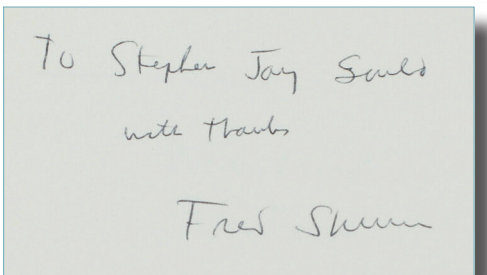 To Stephen Jay Gould
with thanks
Fred